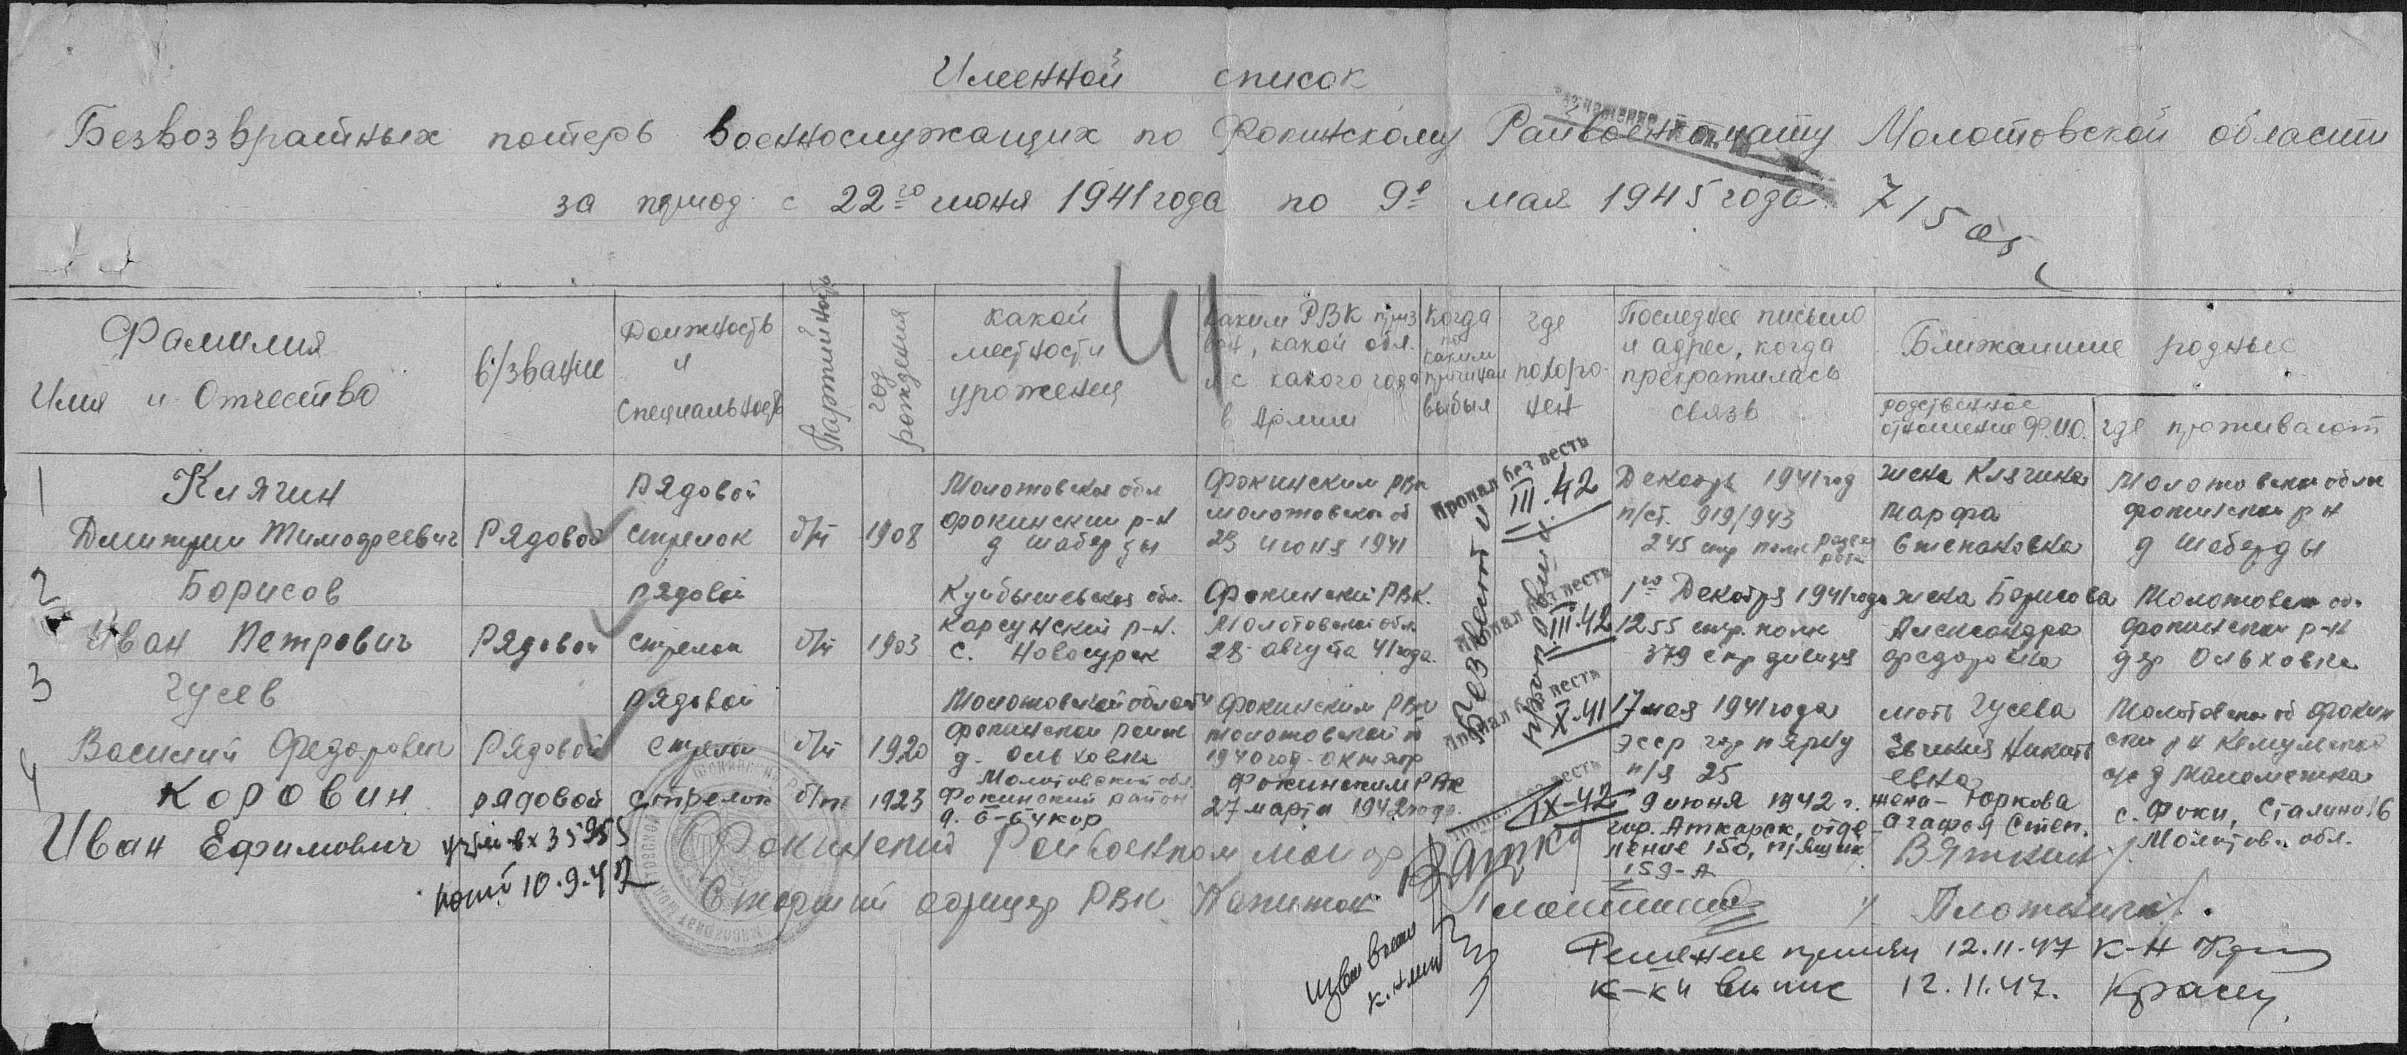 Именной список
Безвозвратных потерь военнослужащих по Фокинскому Райвоенкомату Молотовской области
за период с 22го июня 1941 года по 9е мая 1945 года
715
4
Фамилия
Имя и Отчество
в/звание
Должность
и
специальность
Партийность
год
рождения
какой
местности
уроженец
каким РВК призван, какой обл.
и с какого года
в Армии
Когда
по
каким
причинам
выбыл
где
похоро-
нен
Последнее письмо
и адрес, когда
прекратилась
связь
Ближайшие родные
родственное
отношение Ф.И.О.
где проживают
1
Клягин
Дмитрий Тимофеевич
Рядовой
рядовой
стрелок
б/п
1908
Молотовская обл
Фокинский р-н
д Шаберды
Фокинским РВК
Молотовской об
23 июня 1941
Пропал без вести
III.42
Декабрь 1941 год
п/ст. 919/943
245 стр полк
жена Клягина
Марфа
Степановна
Молотовской обл
Фокинский р н
д Шаберды
2
Борисов
Иван Петрович
Рядовой
рядовой
стрелок
б/п
1903
Куйбышевская обл.
Карсунский р-н.
с. Новосурск
Фокинский РВК.
Молотовской обл
28 августа 41 года.
Пропал без вести
III.42
1го Декабря 1941 года
1255 стр. полк
379 стр дивизия
жена Борисова
Александра
Федоровна
Молотовск об.
Фокинский р-н
дер Ольховка
3
Гусев
Василий Федорович
Рядовой
рядовой
стрелок
б/п
1920
Молотовской области
Фокинский район
д. Ольховка
Фокинским РВК
Молотовской об
1940 год-октябр
Пропал без вести
X.41
17 мая 1941 года
ЭССР гор Пярну
п/я 25
мать Гусева
Евгения
Молотовской об Фокин
ский р н
4
Коровин
Иван Ефимович
рядовой
стрелок
б/п
1923
Молотовский обл.
Фокинский район
Фокинским РВК
27 марта 1942 года.
IX-42
9 июня 1942 г.
гор. Аткарск, отде-
ление 150, п/ящик
159-А
жена-Юркова
Агафья Степ.
с. Фоки, Сталина 16
Молотов. обл.
Без вести
вх 35955
10.9.42
Фокинский Райвоенком майор
Вяткин
Старший офицер РВК Капитан
Плотников
Решение принял 12.11.47 к-н
12.11.47.